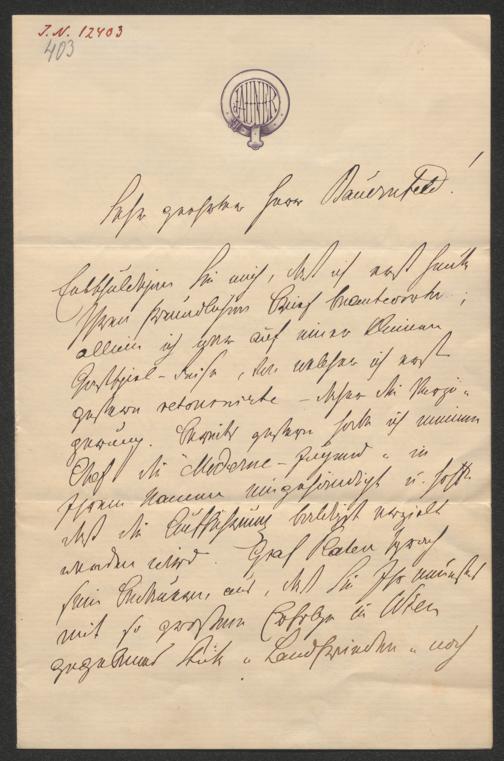 I.N. 12403
403
JAUNER
Sehr geehrter Herr Bauernfeld!
Entschuldigen Sie mich, daß ich erst heute
Ihren freundlichen Brief beantworte;
allein ich war auf einer kleinen
Gastspiel-Reise, von welcher ich erst
gestern retournirte – daher die Verzö-
gerung. Bereits gestern habe ich meinem
Chef die "Moderne-Jugend" in
Ihrem Namen eingehändigt u. hoffe
daß die Aufführung baldigst erzielt
werden wird. Graf Platen sprach
sein Bedauern aus, daß Sie Ihr neuestes
mit so großem Erfolge in Wien
gegebenes Stück "Landfrieden" noch